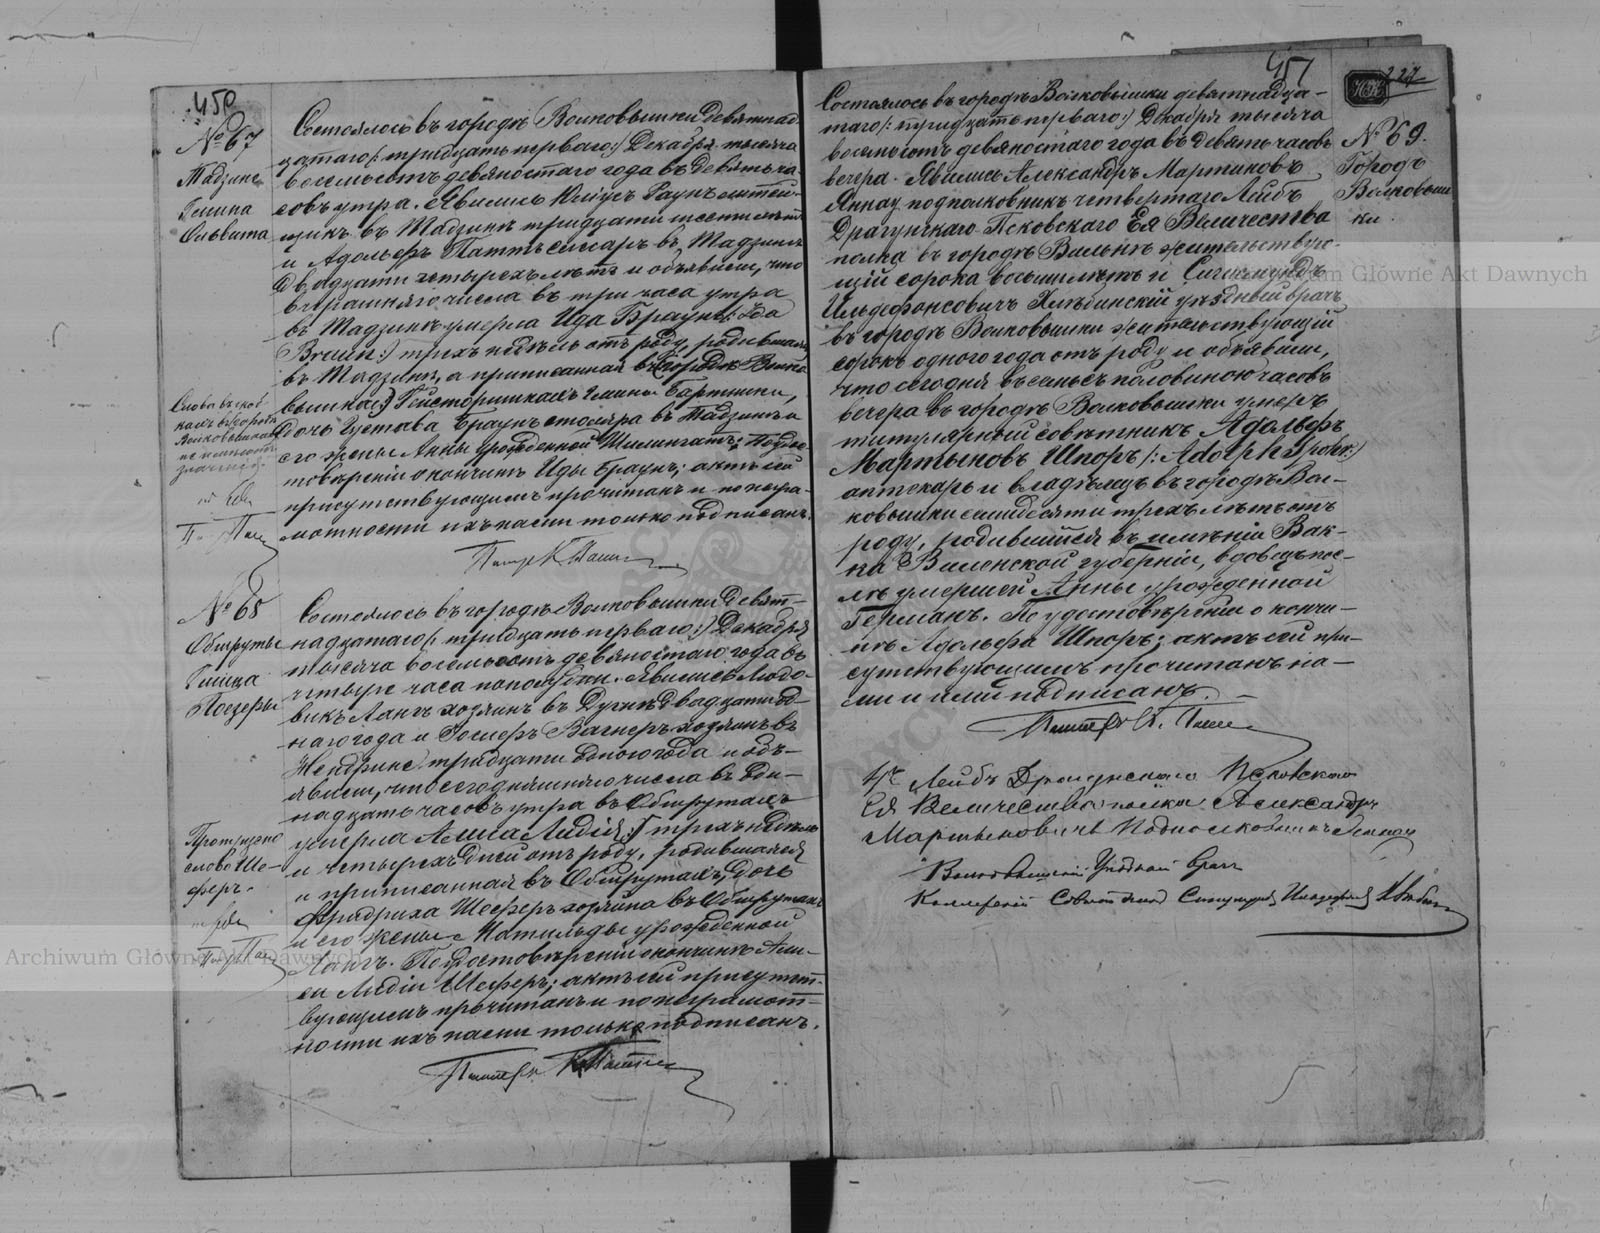 450
№ 67
Мадзине
Гмина
Ольвита
Состоялось въ городѣ Волковышки девятнад
цатаго /: тридцать перваго :/ Декабря тысяча
восемьсотъ девяностаго года въ девять ча-
совъ утра. Явились Юліусъ Раунъ
щикъ въ Мадзинѣ тридцати шести лѣтъ
и Адольфъ въ Мадзинѣ
двадцати четырехъ лѣтъ и объявили, что
вчерашняго числа въ три часа утра
въ Мадзинѣ умерла Ида Браунъ /: Ida
Braun :/ трехъ недѣль отъ роду, родившаяся
въ Мадзинѣ, а приписанная въ (городѣ Волко
вышкахъ) гмины Бартники,
дочь Густава Браунъ столяра въ Мадзинѣ и
его жены Анны урожденной Шилингатъ; По удос-
товѣреніи о кончинѣ Иды Браунъ; актъ сей
присутствующимъ прочитанъ и по негра-
мотности ихъ нами только подписанъ.
Слова въ скоб
кахъ въ городѣ
Волковышкахъ
не имѣютъ
значенія
№ 68
Обшруты
Гмина
Поезеры
Состоялось въ городѣ Волковышки девят-
надцатаго /: тридцать перваго :/ Декабря
тысяча восемьсотъ девяностаго года въ
четыре часа пополудни. Явились Людо-
викъ Лангъ хозяинъ въ двадцати од-
наго года и Вагнеръ хозяинъ въ
тридцати одного года и объ-
явили, что сегодняшняго числа въ оди-
надцать часовъ утра въ Обшрутахъ
умерла Алиса Лидія трехъ недѣль
и четырехъ дней отъ роду, родившаяся
и приписанная въ Обшрутахъ, дочь
Фридриха Шеферъ хозяина въ Обшрутахъ
и его жены Матильды урожденной
Лангъ. По удостовѣреніи о кончинѣ Али-
сы Лидіи Шеферъ; актъ сей присутст-
вующимъ прочитанъ и по неграмот-
ности ихъ нами только подписанъ.
Пропущено
слово Ше-
феръ.
451
227
№ 69.
Городъ
Волковыш
ки.
Состоялось въ городѣ Волковышки девятнадца-
таго /: тридцать перваго :/ Декабря тысяча
восемьсотъ девяностаго года въ девять часовъ
вечера. Явились Александръ Мартиновъ
Яннау подполковникъ четвертаго Лейбъ
Драгунскаго Псковскаго Ея Величества
полка въ городѣ Вильнѣ жительствую-
щій сорока восьми лѣтъ и Сигизмундъ
Ильдефонсовичъ Хлѣбинскій уѣздный врачъ
въ городѣ Волковышки жительствующій
сорокъ одного года отъ роду и объявили,
что сегодня въ семь съ половиною часовъ
вечера въ городѣ Волковышки умеръ
титулярный совѣтникъ Адольфъ
Мартыновъ Шпоръ /: Adolph Spohr :/
аптекарь и владѣлецъ въ городѣ Вол-
ковышки семидесяти трехъ лѣтъ отъ
роду, родившійся въ имѣніи Вак-
ка Виленской губерніи, вдовецъ пос-
лѣ умершей Анны урожденной
Германъ. По удостовѣреніи о кончи-
нѣ Адольфа Шпоръ; актъ сей при-
сутствующимъ прочитанъ на-
ми и ими подписанъ.
Лейбъ Драгунскаго Псковскаго
Ея Величества полка Александръ
Мартыновичъ Подполковникъ Яннау
Волковышскій Уѣздный врачъ
Archiwum Główne Akt Dawnych
Archiwum Główne Akt Dawnych